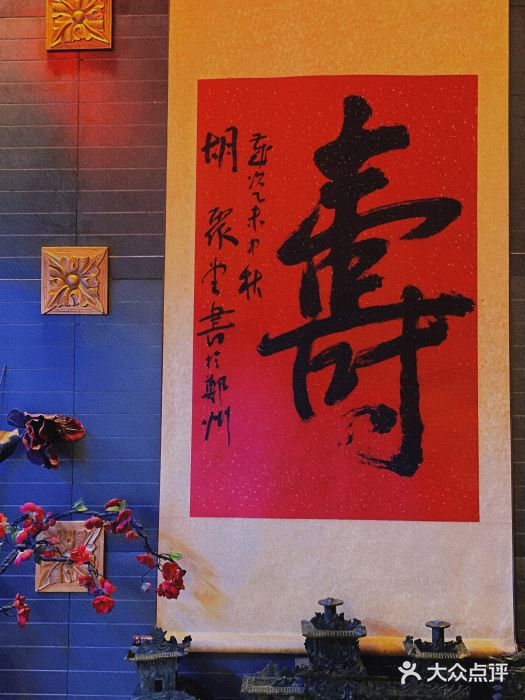 壽
歲次乙未中秋
胡聚堂書於鄭州
大众点评